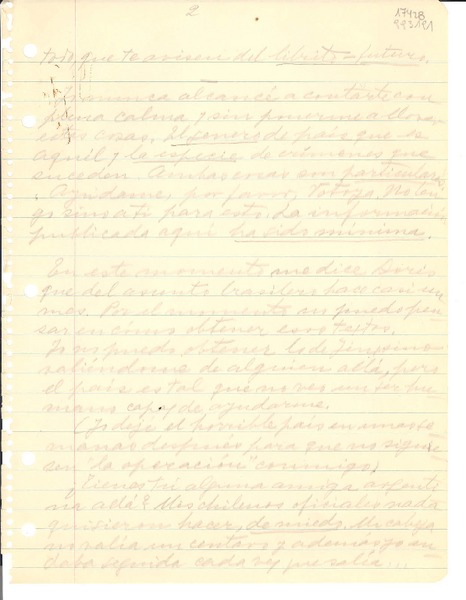 2
17428
993191
todo que te avisen del librito = futuro.
Yo nunca alcancé a contarte con
plena calma y sin ponerme a llorar
estas cosas. El género de país que es
aquél y la especie de crímenes que
suceden. Ambas cosas son particulares.
Ayúdame, por favor, Totoya. No ten-
go sino a ti para esto. La información
publicada aquí ha sido mínima.
En este momento me dice Doris
que del asunto brasilero hace casi
mes. Por el momento no puedo pen-
sar en cómo obtener esos textos.
Yo no puedo obtener lo de
valiéndome de alguien allá, pero
el país es tal que no veo un ser hu-
mano capaz de ayudarme.
(Yo dejé el horrible país en unas se-
manas después para que no siguie-
sen "la operación" conmigo)
¿Tienes tú alguna amiga argenti-
na allá? Mis chilenos oficiales nada
quisieron hacer, de miedo. Mi cabeza
no valía un centavo y además yo an-
daba seguida cada vez que salía...